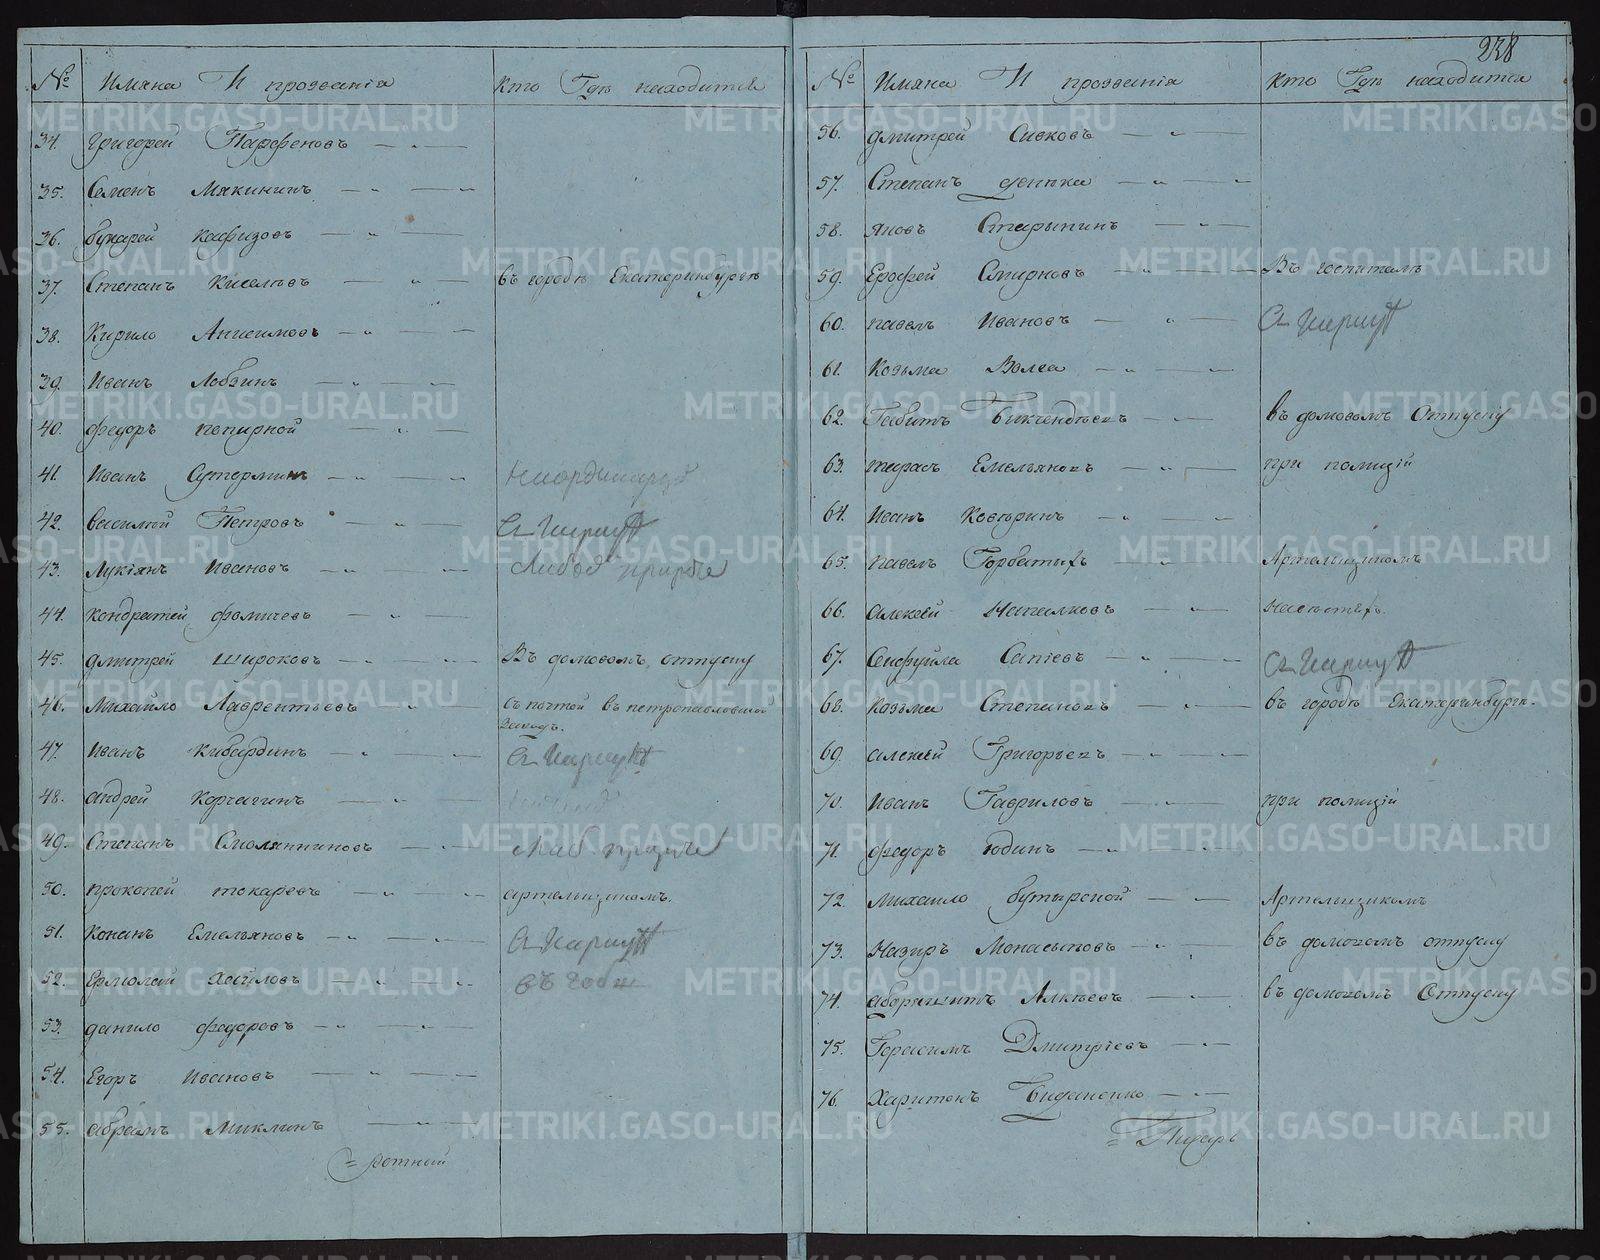 238
№ Имяна И прозвания кто Гдѣ находится
34. Григорей Парфеновъ
35. Семенъ Мякининъ
36. букарей Кафизовъ
37. Степанъ Киселевъ въ городѣ Екатеринбургѣ
38. Кирило Анисимовъ
39. Иванъ Лобзинъ
40. федоръ пепирной
41. Иванъ Сутерминъ
42. василей Петровъ
43. Лукіянъ Ивановъ
44. кондратей фомичевъ
45. дмитрей широковъ Въ домовомъ отпуску
46. Михайло Лаврентьевъ съ почтой въ петропавловской
Заводъ.
47. Иванъ Кибардинъ
48. андрей Корчагинъ
49. Степанъ Смолянниковъ
50. прокопей токаревъ артельщикомъ.
51. Конанъ Емельяновъ
52. Ермолай
53. данило федоровъ
54. Егоръ Ивановъ
55. абрамъ Миклинъ
= ротный
№ Имяна И прозвания кто Гдѣ находится
56. дмитрей Сивковъ
57. Степанъ
58. яковъ Старынинъ
59. Ерофей Смирновъ Въ госпиталѣ
60. павелъ Ивановъ
61. Козьма Волга
62. Габитъ Бикчендѣевъ въ домовомъ Отпуску
63. тарасъ Емельяновъ при полиціи
64. Иванъ Ковыринъ
65. павелъ Горбатыхъ Артельщикомъ
66. алексей Напалковъ
67. Сейфуйла Сапіевъ
68. Козьма Степановъ въ городѣ Екатеринбургѣ.
69. алексей Григорьевъ
70. Иванъ Гавриловъ при полиціи
71. федоръ юдинъ
72. михайло бутырской Артельщикомъ
73. Назиръ Монасыповъ въ домовомъ отпуску
74. аборяшитъ Алкѣевъ въ домовомъ Отпуску
75. Герасимъ Дмитріевъ
76. Харитонъ Гиданенко
= Писарь
METRIKI.GASO-URAL.RU